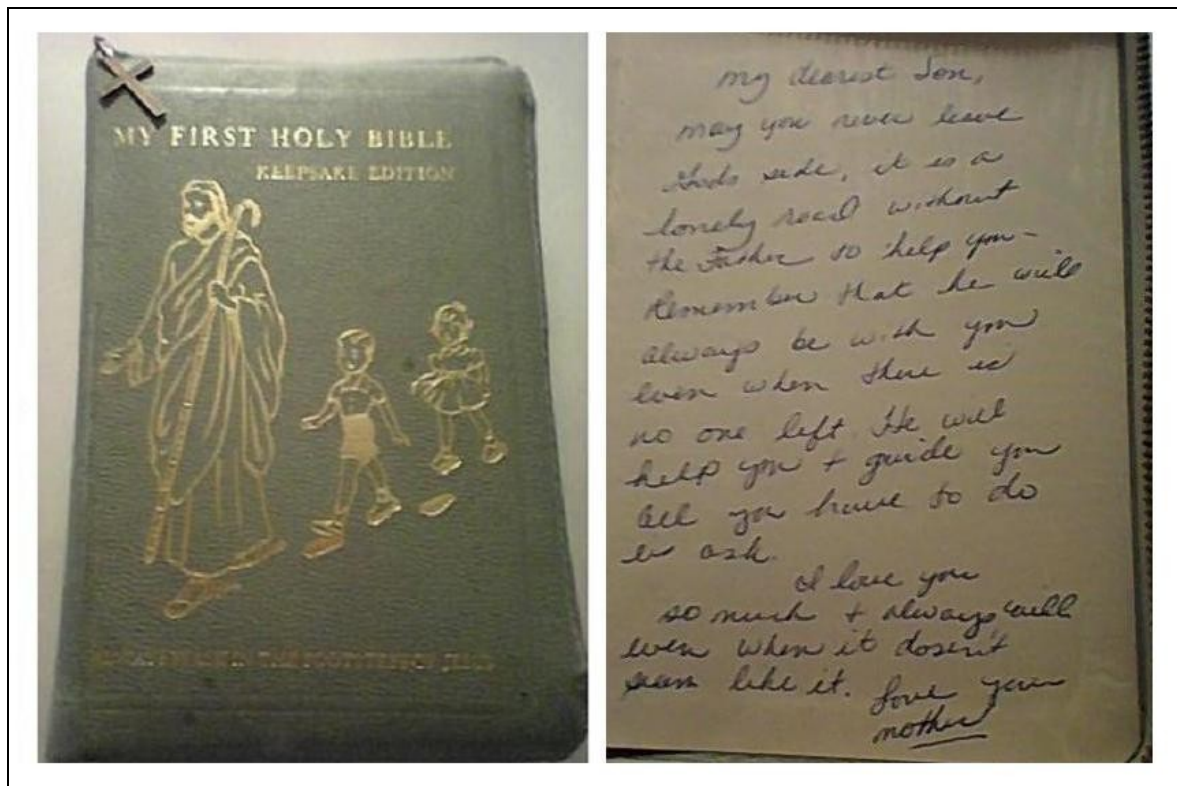 MY FIRST HOLY BIBLE
KEEPSAKE EDITION
IN THE FOOTSTEPS OF
My dearest Son,
may you never leave
Gods side, it is a
lonely road without
the Father to help you -
Remember that he will
always be with you
even when there is
no one left. He will
help you + guide you
all you have to do
is ask.
I love you
so much + always will
even when it dosen't
seem like it. Love your
mother